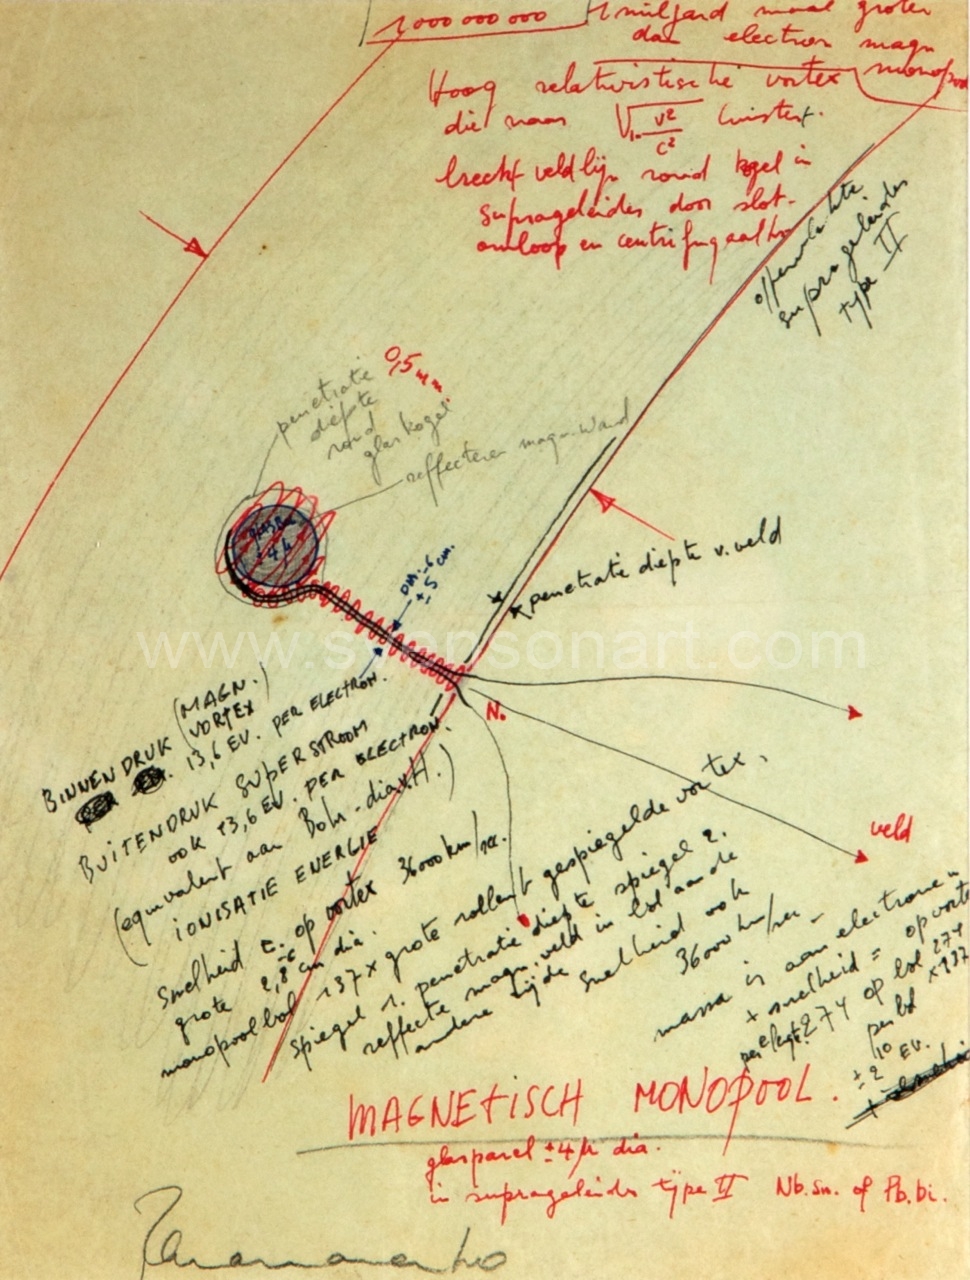 1000 000 000 1 miljard maal groter
dan electron magn
monopool
Hoog relativistische vortex
die naar √1-v²/c² luistert
breekt veldlijn rond kogel in
suprageleider door slot-
omloop en centrifugaal
oppervlakte
suprageleider
type II
0,5 mm
penetratie
diepte
rond
glaskogel
reflecteren magn. wand
glas
4µ
± 5 cm.
penetratie diepte v. veld
www.svensonart.com
N.
veld
BINNENDRUK (MAGN. VORTEX)
13,6 EV. PER ELECTRON.
BUITENDRUK SUPERSTROOM
OOK 13,6 EV. PER ELECTRON.
(equivalent aan Bohr-dia v. H.)
IONISATIE ENERGIE
snelheid e- op vortex 36000 km/sec.
grote 2,8 cm dia.
monopool bol 137x grote gespiegelde vortex.
spiegel 1. penetratie diepte spiegel 2.
reflectie magn. veld in bol aan de
andere zijde snelheid ook
36000 km/sec
massa is aan electronen
+ snelheid = op vortex
274 op bol 274
per bol x 137
± 10
± 2 EV.
MAGNETISCH MONOPOOL.
glasparel ±4µ dia.
in suprageleider type II Nb.sn. of Pb.bi.
Panamarenko